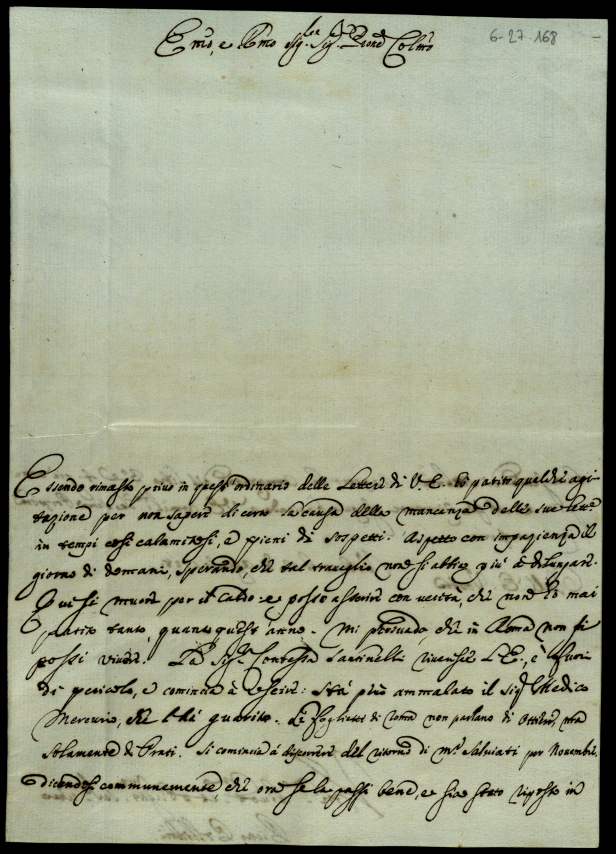 Em̃o, e Rm̃o Sig.re Sig. Pron̄e Colm̃o
6-27-168
Essendo rimasto privo in quest'ordinario delle lettere di V. E. hò patito qualche agi-
tazione per non sapere di certo la causa della mancanza delle sue lett.e
in tempi così calamitosi, e pieni di sospetti. Aspetto con impazienza il
giorno di domani, sperando, che tal travaglio non si abbia più à
Quì si muore per il caldo: e posso asserire con verità, che non hò mai
patito tanto, quanto quest'anno. Mi persuado, che in Roma non si
possi vivere. La Sig.ra Contessa Santinelli riverisce V. E., è fuori
di pericolo, e comincia à escire: stà però ammalato il Sig.r Medico
Mercurio, che l'hà guarito. Li foglietti di Roma non parlano di
solamente di Prati. Si comincia à discorrere del ritorno di m.r Salviati per Novembre,
dicendosi communemente, che ora se la passi bene, e sia stato riposto in